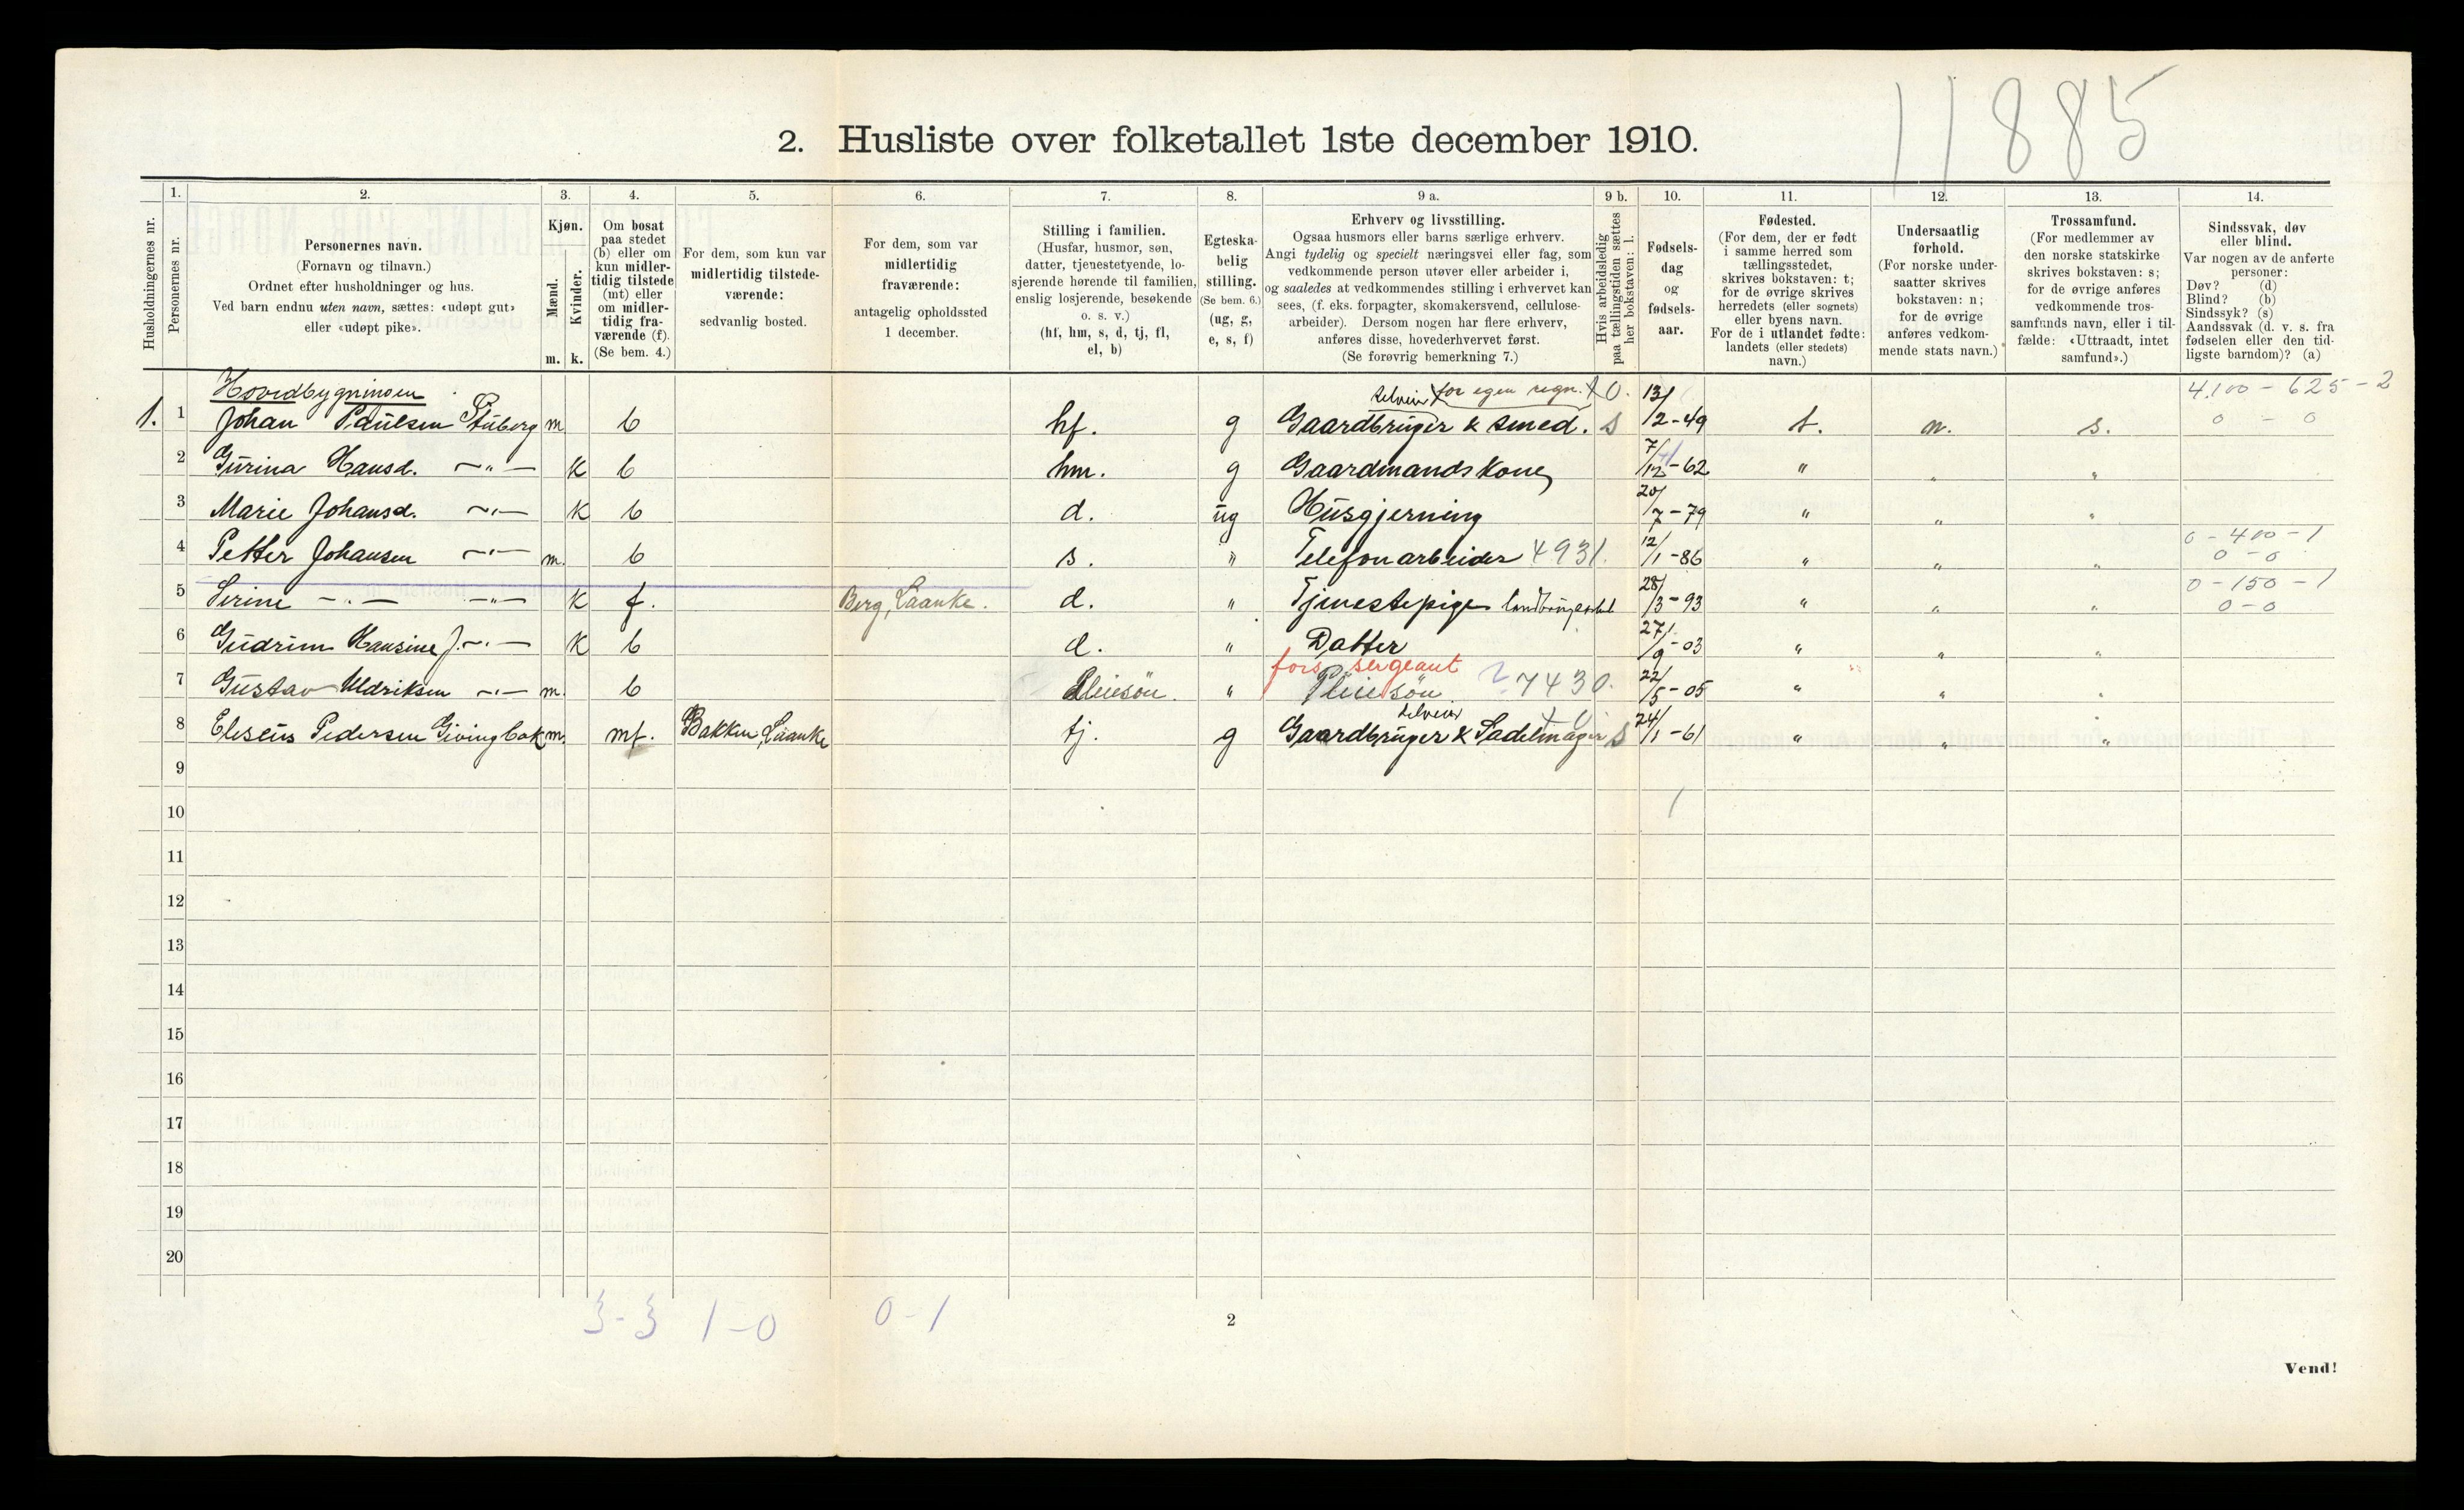 11885
2. Husliste over folketallet 1ste december 1910.
Husholdningernes nr.
1.
Personernes nr.
2.
Personernes navn.
(Fornavn og tilnavn.)
Ordnet efter husholdninger og hus.
Ved barn endnu uten navn, sættes: «udøpt gut»
eller «udøpt pike».
3.
Kjøn.
Mænd.
Kvinder.
m. k.
4.
Om bosat
paa stedet
(b) eller om
kun midler-
tidig tilstede
(mt) eller
om midler-
tidig fra-
værende (f).
(Se bem. 4.)
5.
For dem, som kun var
midlertidig tilstede-
værende:
sedvanlig bosted.
6.
For dem, som var
midlertidig
fraværende:
antagelig opholdssted
1 december.
7.
Stilling i familien.
(Husfar, husmor, søn,
datter, tjenestetyende, lo-
sjerende hørende til familien,
enslig losjerende, besøkende
o. s. v.)
(hf, hm, s, d, tj, fl,
el, b)
8.
Egteska-
belig
stilling.
(Se bem. 6.)
(ug, g,
e, s, f)
9 a.
Erhverv og livsstilling.
Ogsaa husmors eller barns særlige erhverv.
Angi tydelig og specielt næringsvei eller fag, som
vedkommende person utøver eller arbeider i,
og saaledes at vedkommendes stilling i erhvervet kan
sees, (f. eks. forpagter, skomakersvend, cellulose-
arbeider). Dersom nogen har flere erhverv,
anføres disse, hovederhvervet først.
(Se forøvrig bemerkning 7.)
9 b.
Hvis arbeidsledig
paa tællingstiden sættes
her bokstaven: l.
10.
Fødsels-
dag
og
fødsels-
aar.
11.
Fødested.
(For dem, der er født
i samme herred som
tællingsstedet,
skrives bokstaven: t;
for de øvrige skrives
herredets (eller sognets)
eller byens navn.
For de i utlandet fødte:
landets (eller stedets)
navn.)
12.
Undersaatlig
forhold.
(For norske under-
saatter skrives
bokstaven: n;
for de øvrige
anføres vedkom-
mende stats navn.)
13.
Trossamfund.
(For medlemmer av
den norske statskirke
skrives bokstaven: s;
for de øvrige anføres
vedkommende tros-
samfunds navn, eller i til-
fælde: «Uttraadt, intet
samfund».)
14.
Sindssvak, døv
eller blind.
Var nogen av de anførte
personer:
Døv? (d)
Blind? (b)
Sindssyk? (s)
Aandssvak (d. v. s. fra
fødselen eller den tid-
ligste barndom)? (a)
Hovedbygningen
selveier for egen regn. 4.100 - 625 - 2
1. 1 Johan Paulsen Stuberg m b hf. g Gaardbruger & smed. s 13/2-49 t. n. s. 0 - 0
2 Gurina Hansd. —"— k b hm. g Gaardmandskone 7/12-62 " " "
3 Marie Johansd. —"— k b d. ug Husgjerning 20/7-79 " " "
0 - 400 - 1
4 Petter Johansen —"— m. b s. " Telefonarbeider 4931. 12/1-86 " " " 0 - 0
0 - 150 - 1
5 Serine —"— —"— k f. Berg, Laanke. d. " Tjenestepige 28/3-93 " " " 0 - 0
6 Gudrun Hansine J. —"— k b d. " Datter 27/9-03 " " "
fors. sergeant
7 Gustav Uldriksen —"— m. b Pleiesøn. " Pleiesøn 7430. 22/5-05 " " "
selveier
8 Eliseus Pedersen Givingbak m. mt. Bakken, Laanke tj. g Gaardbruger & Sadelmager s 24/1-61 " " "
9
10
11
12
13
14
15
16
17
18
19
20
3-3 1-0 0-1
2
Vend!